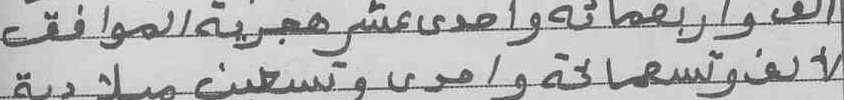 الف واربعمائه واحدى عشر هجرية الموافق
لالف وتسعمائة واحدى وتسعين ميلادية